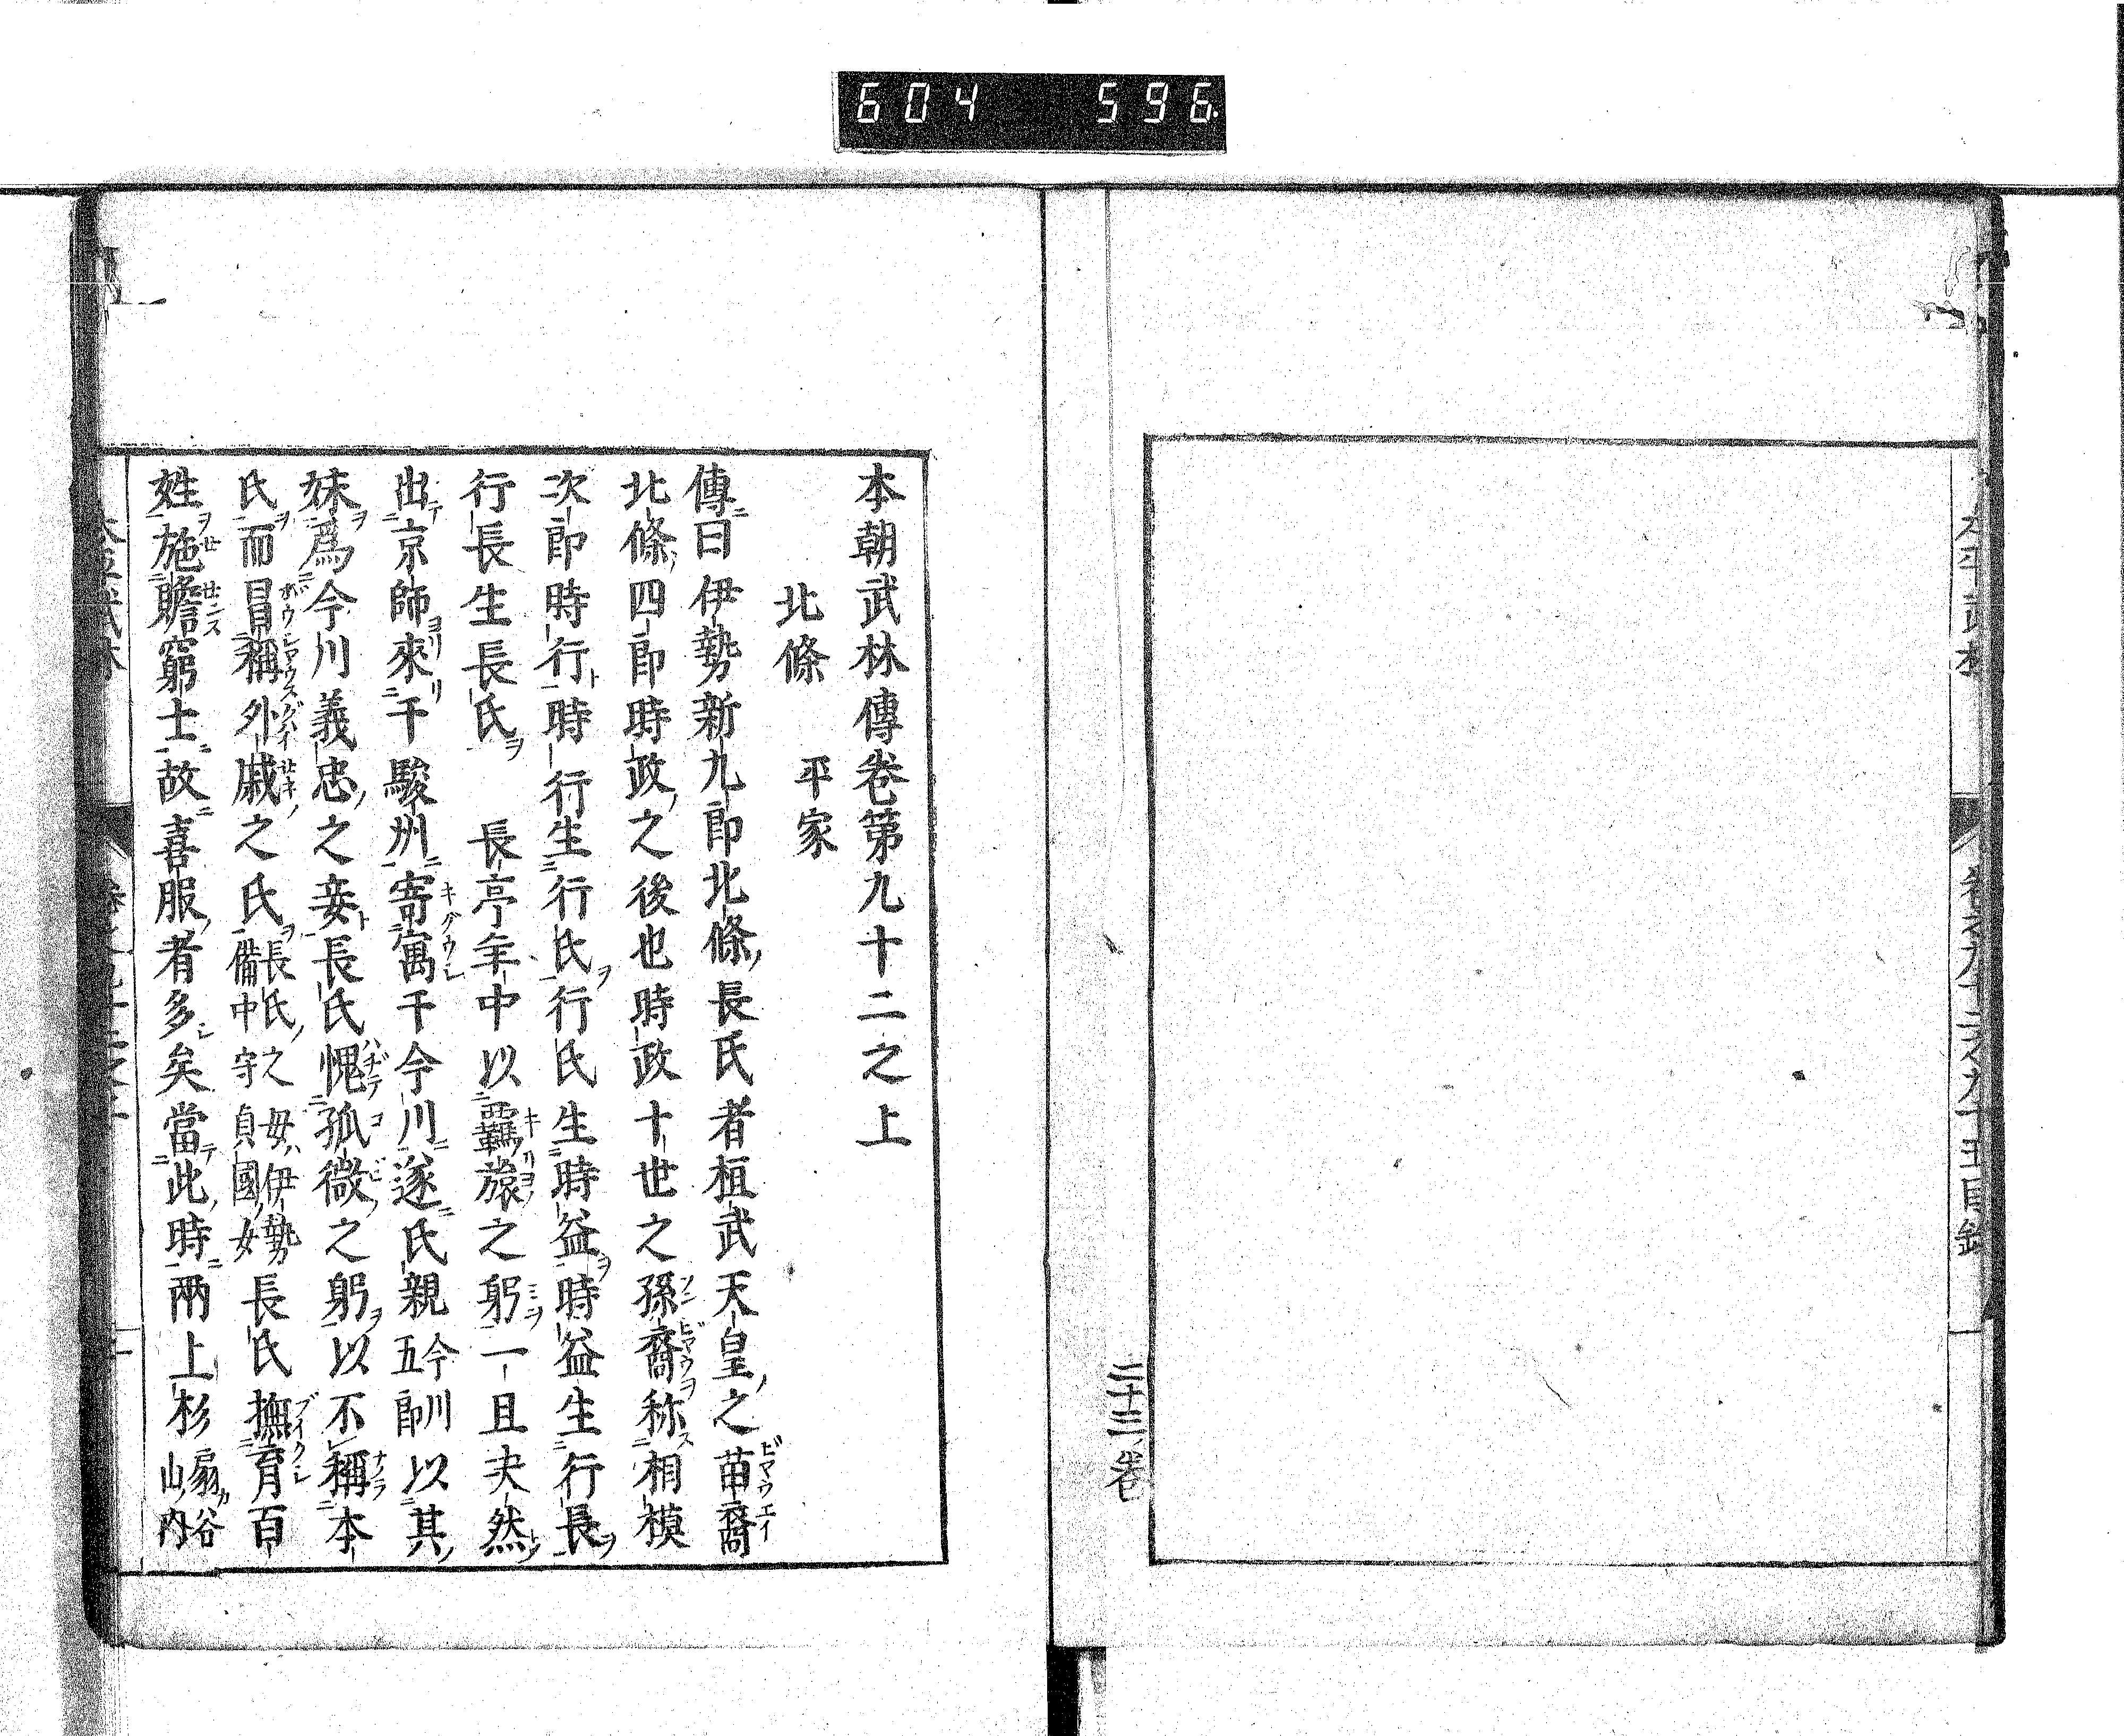 604 596.
二十三卷
本朝武林傳卷第九十二之上
北條 平家
傳曰伊勢新九郎北條長氏者桓武天皇之苗裔
北條四郎時政之後也時政十世之孫裔称相模
次郎時行時行生行氏行氏生時益時益生行長
行長生長氏 長享年中以羈旅之躬一旦夫然
出京師來于駿州寄寓于今川遂氏親今川五郎以其
妹爲今川義忠之妾長氏愧孤微之躬以不稱本
氏而冒稱外戚之氏長氏之母伊勢備中守貞國女長氏撫育百
姓施贍窮士故喜服者多矣當此時兩上杉扇谷山內